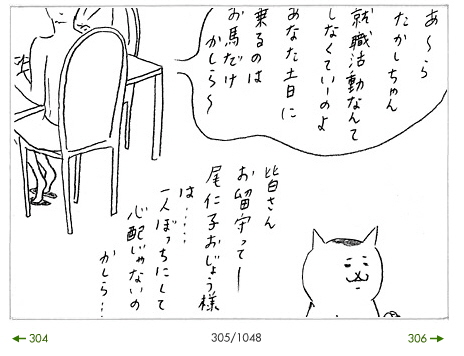 あ〜ら
たかしちゃん
就職活動なんて
しなくていーのよ
あなた土日に
乗るのは
お馬だけ
かしら〜
皆さん
お留守ってー
尾仁子おじょう様
は……
一人ぼっちにして
心配じゃないの
かしら…
304
305/1048
306